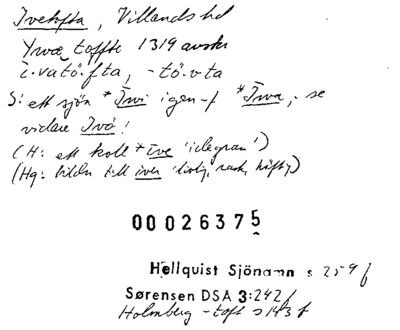 Ivetofta, Villands hd
Ywætoffte 1319 avskr
i·vatö·fta, -tö·vta
S: ett sjön *Īwi igen-f *Īwa, se
vidare Ivö!
(H: ett koll *īve 'idegran')
(Hq: bildn till iver 'livlig, rask, häftig')
00026375
Hellquist Sjönamn s 259 f
Sørensen DSA 3:242 f
Holmberg -toft s 143 f